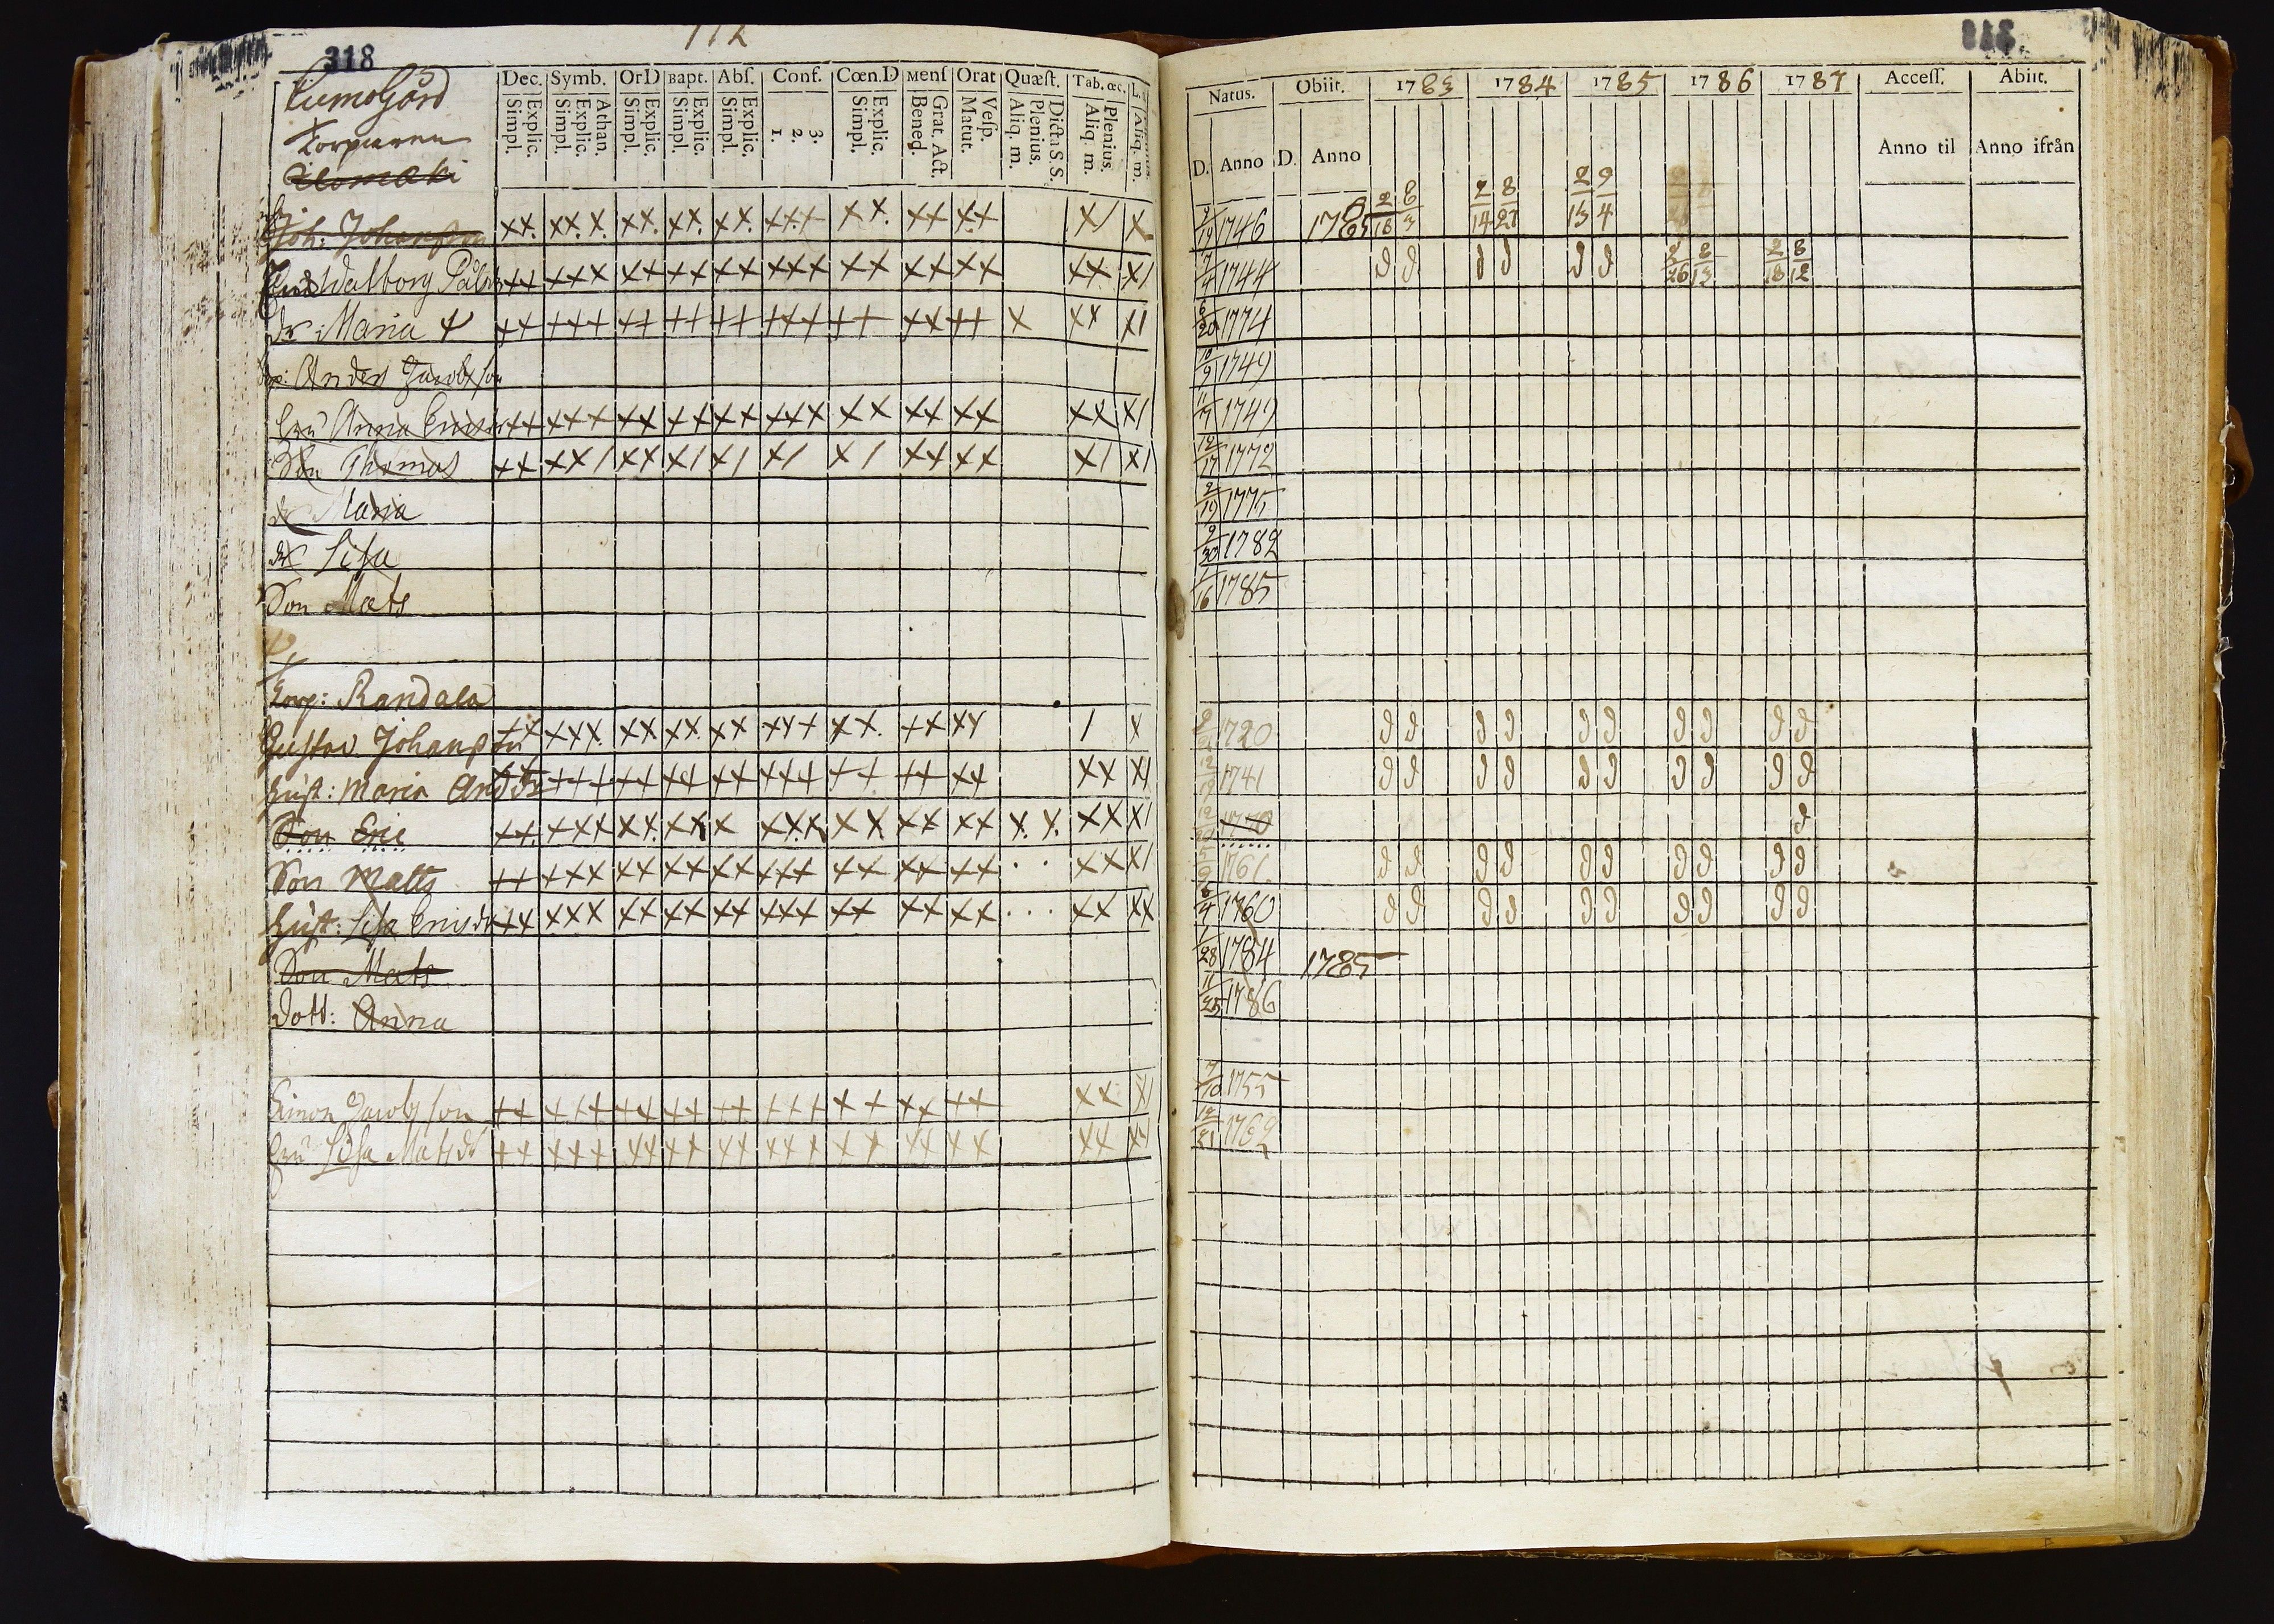 318
112
Cumogård
Torparen
Dec. Symb. OrD Bapt. Abs. Conf. Cœn.D Mens Orat Quæst. Tab. œc.
Explic. Simpl. Athan. Explic. Simpl. Explic. Simpl. Explic. Simpl. Explic. Simpl. 3. 2. 1. Explic. Simpl. Grat. Act. Bened. Vesp. Matut. Dicta S. S. Plenius. Aliq. m. Plenius. Aliq. m. Aliq. m.
Natus. Obiit. 1783 1784 1785 1786 1787 Access. Abiit.
D. Anno D. Anno Anno til Anno ifrån
Joh: Johansson xx. xx. x. xx. xx. xx. xxx xx. xx xx x/ x 1746 1785 2/18 8/3 2/14 8/27 2/13 9/4
Walborg xx xxx xx xx xx xxx xx xx xx xx x/ 7/4 1744 d d d d d d 2/26 8/13 2/18 8/12
dr Maria xx xxx xx xx xx xxx xx xx xx x xx x/ 6/20 1774
Anders Jacobsson 10/9 1749
Anna xx xxx xx xx xx xxx xx xx xx xx x/ 1749
Son Thomas xx xx/ xx x/ x/ x/ x/ xx xx x/ x/ 12/17 1772
dr Maria 2/19 1775
dr Lisa 9/30 1782
Son Mats 1/16 1785
Torp: Randala
Gustav Johansson xx xxx. xx xx xx xxx xx. xx xx / x 1720 d d d d d d d d d d
Hust: Maria xx xxx xx xx xx xxx xx xx xx xx x/ 12/19 1741 d d d d d d d d d d
Son Eric xx. xxx xx. xx x xxx x x. xx xx x. x. xx x/ 1770 d
Son Matts xx xxx xx xx xx xxx xx xx xx . . xx x/ 5/9 1761. d d d d d d d d d d
Hust: Lisa Ericsdr xx xxx xx xx xx xxx xx xx xx . . . xx xx 6/4 1760 d d d d d d d d d d
Son Mats 1/28 1784 1785
Dott: Anna 11/25 1786
Simon Jacobsson xx xxx xx xx xx xxx x x xx xx xx x/ 7/10 1755
Lisa Matsdr xx xxx xx xx xx xxx xx xx xx xx xx 12/21 1762